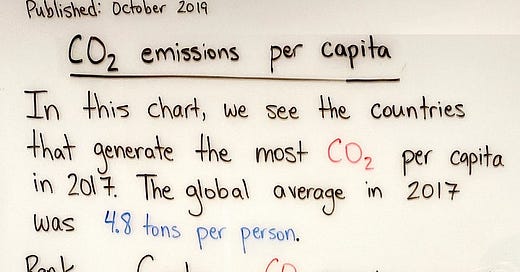 Published: October 2019
CO₂ emissions per capita
In this chart, we see the countries
that generate the most CO₂ per capita
in 2017. The global average in 2017
was 4.8 tons per person.
Rank